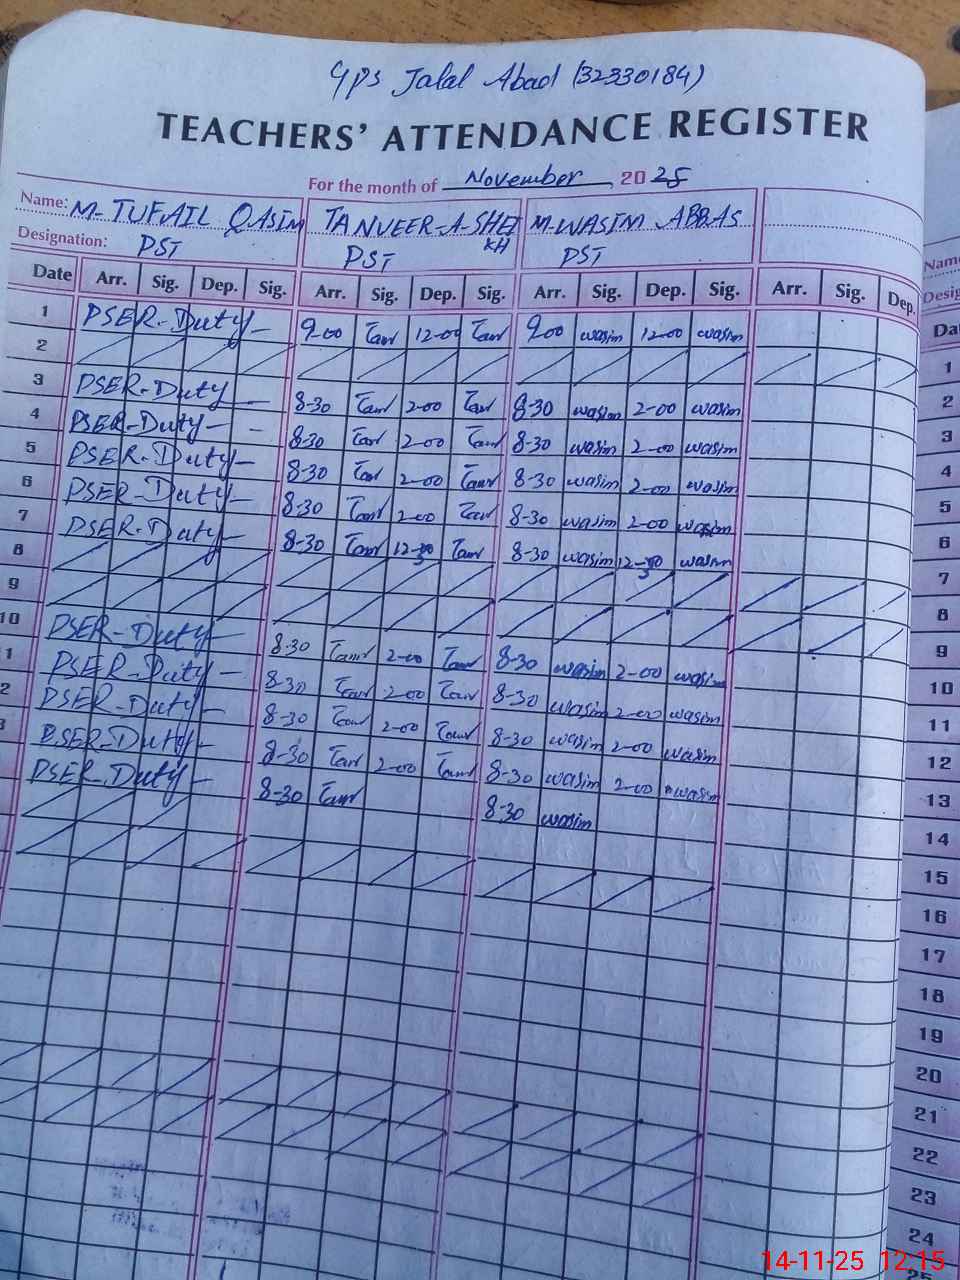 GPS Jalal Abad (32330184)
TEACHERS' ATTENDANCE REGISTER
For the month of November 2025
Name: M-TUFAIL QASIM TANVEER-A-SHEIKH M-WASIM ABBAS
Designation: PST PST PST
Date Arr. Sig. Dep. Sig. Arr. Sig. Dep. Sig. Arr. Sig. Dep. Sig. Arr. Sig. Dep.
1 PSER-Duty- 9-00 Tanv 12-00 Tanv 9-00 wasim 12-00 wasim
2
3 PSER-Duty- 8-30 Tanv 2-00 Tanv 8-30 wasim 2-00 wasim
4 PSER-Duty- - 8-30 Tanv 2-00 Tanv 8-30 wasim 2-00 wasim
5 PSER-Duty- 8-30 Tanv 2-00 Tanv 8-30 wasim 2-00 wasim
6 PSER-Duty- 8-30 Tanv 2-00 Tanv 8-30 wasim 2-00 wasim
7 PSER-Duty- 8-30 Tanv 12-30 Tanv 8-30 wasim 12-30 wasim
8
9
10 PSER-Duty- 8-30 Tanv 2-00 Tanv 8-30 wasim 2-00 wasim
1 PSER-Duty- 8-30 Tanv 2-00 Tanv 8-30 wasim 2-00 wasim
2 PSER-Duty- 8-30 Tanv 2-00 Tanv 8-30 wasim 2-00 wasim
3 PSER-Duty- 8-30 Tanv 2-00 Tanv 8-30 wasim 2-00 wasim
PSER-Duty- 8-30 Tanv 8-30 wasim
Name
Desig
Da
1
2
3
4
5
6
7
8
9
10
11
12
13
14
15
16
17
18
19
20
21
22
23
24
25
14-11-25 12:15